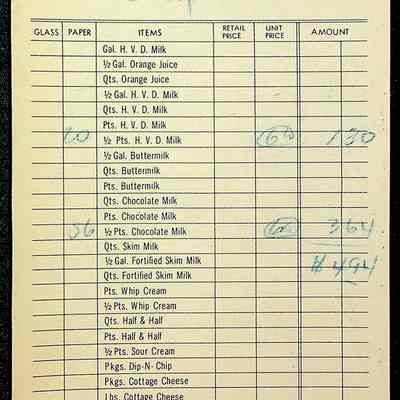 GLASS PAPER ITEMS RETAIL PRICE UNIT PRICE AMOUNT
Gal. H. V. D. Milk
½ Gal. Orange Juice
Qts. Orange Juice
½ Gal. H. V. D. Milk
Qts. H. V. D. Milk
Pts. H. V. D. Milk
20 ½ Pts. H. V. D. Milk 6½ 1 30
½ Gal. Buttermilk
Qts. Buttermilk
Pts. Buttermilk
Qts. Chocolate Milk
Pts. Chocolate Milk
56 ½ Pts. Chocolate Milk 6½ 3 64
Qts. Skim Milk
½ Gal. Fortified Skim Milk $ 4 94
Qts. Fortified Skim Milk
Pts. Whip Cream
½ Pts. Whip Cream
Qts. Half & Half
Pts. Half & Half
½ Pts. Sour Cream
Pkgs. Dip-N-Chip
Pkgs. Cottage Cheese
Lbs. Cottage Cheese